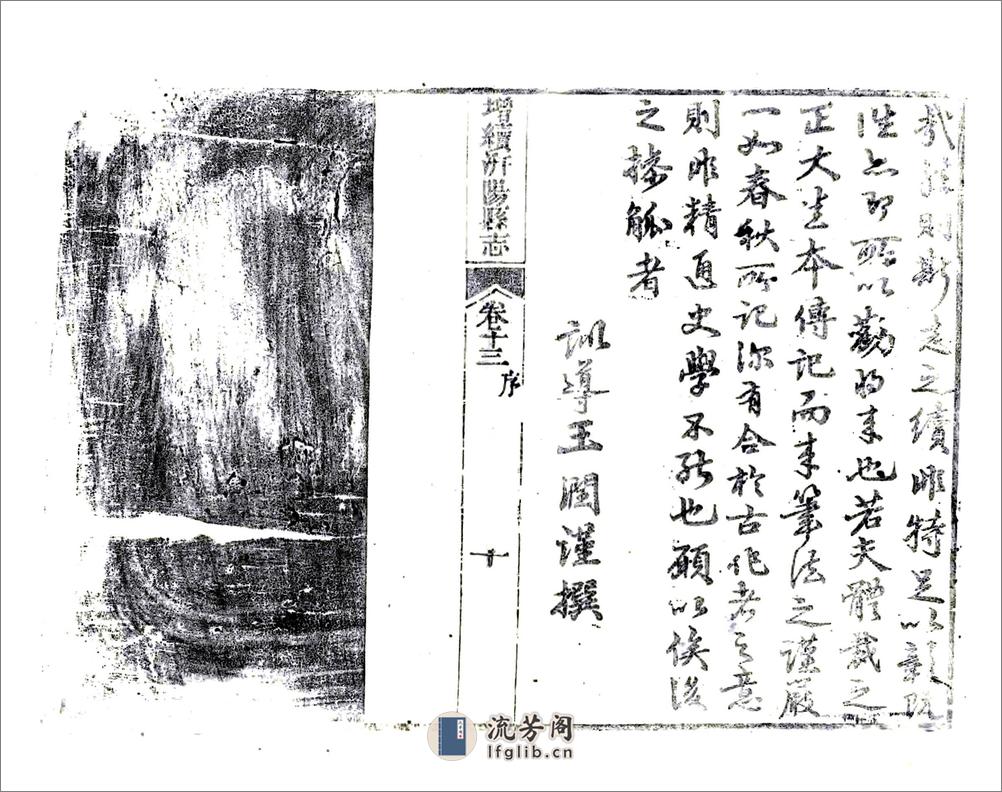 哉然則斯志之續非特足以彰既
往亦即所以勸將来也若夫體裁之
正大半本傳記而来筆法之謹嚴
一如春秋所記深有合於古作者之意
則非精通史學不能也願以俟後
之操觚者
訓導王潤謹撰
增續汧陽縣志
卷十三
序
十
流芳阁
lfglib.cn